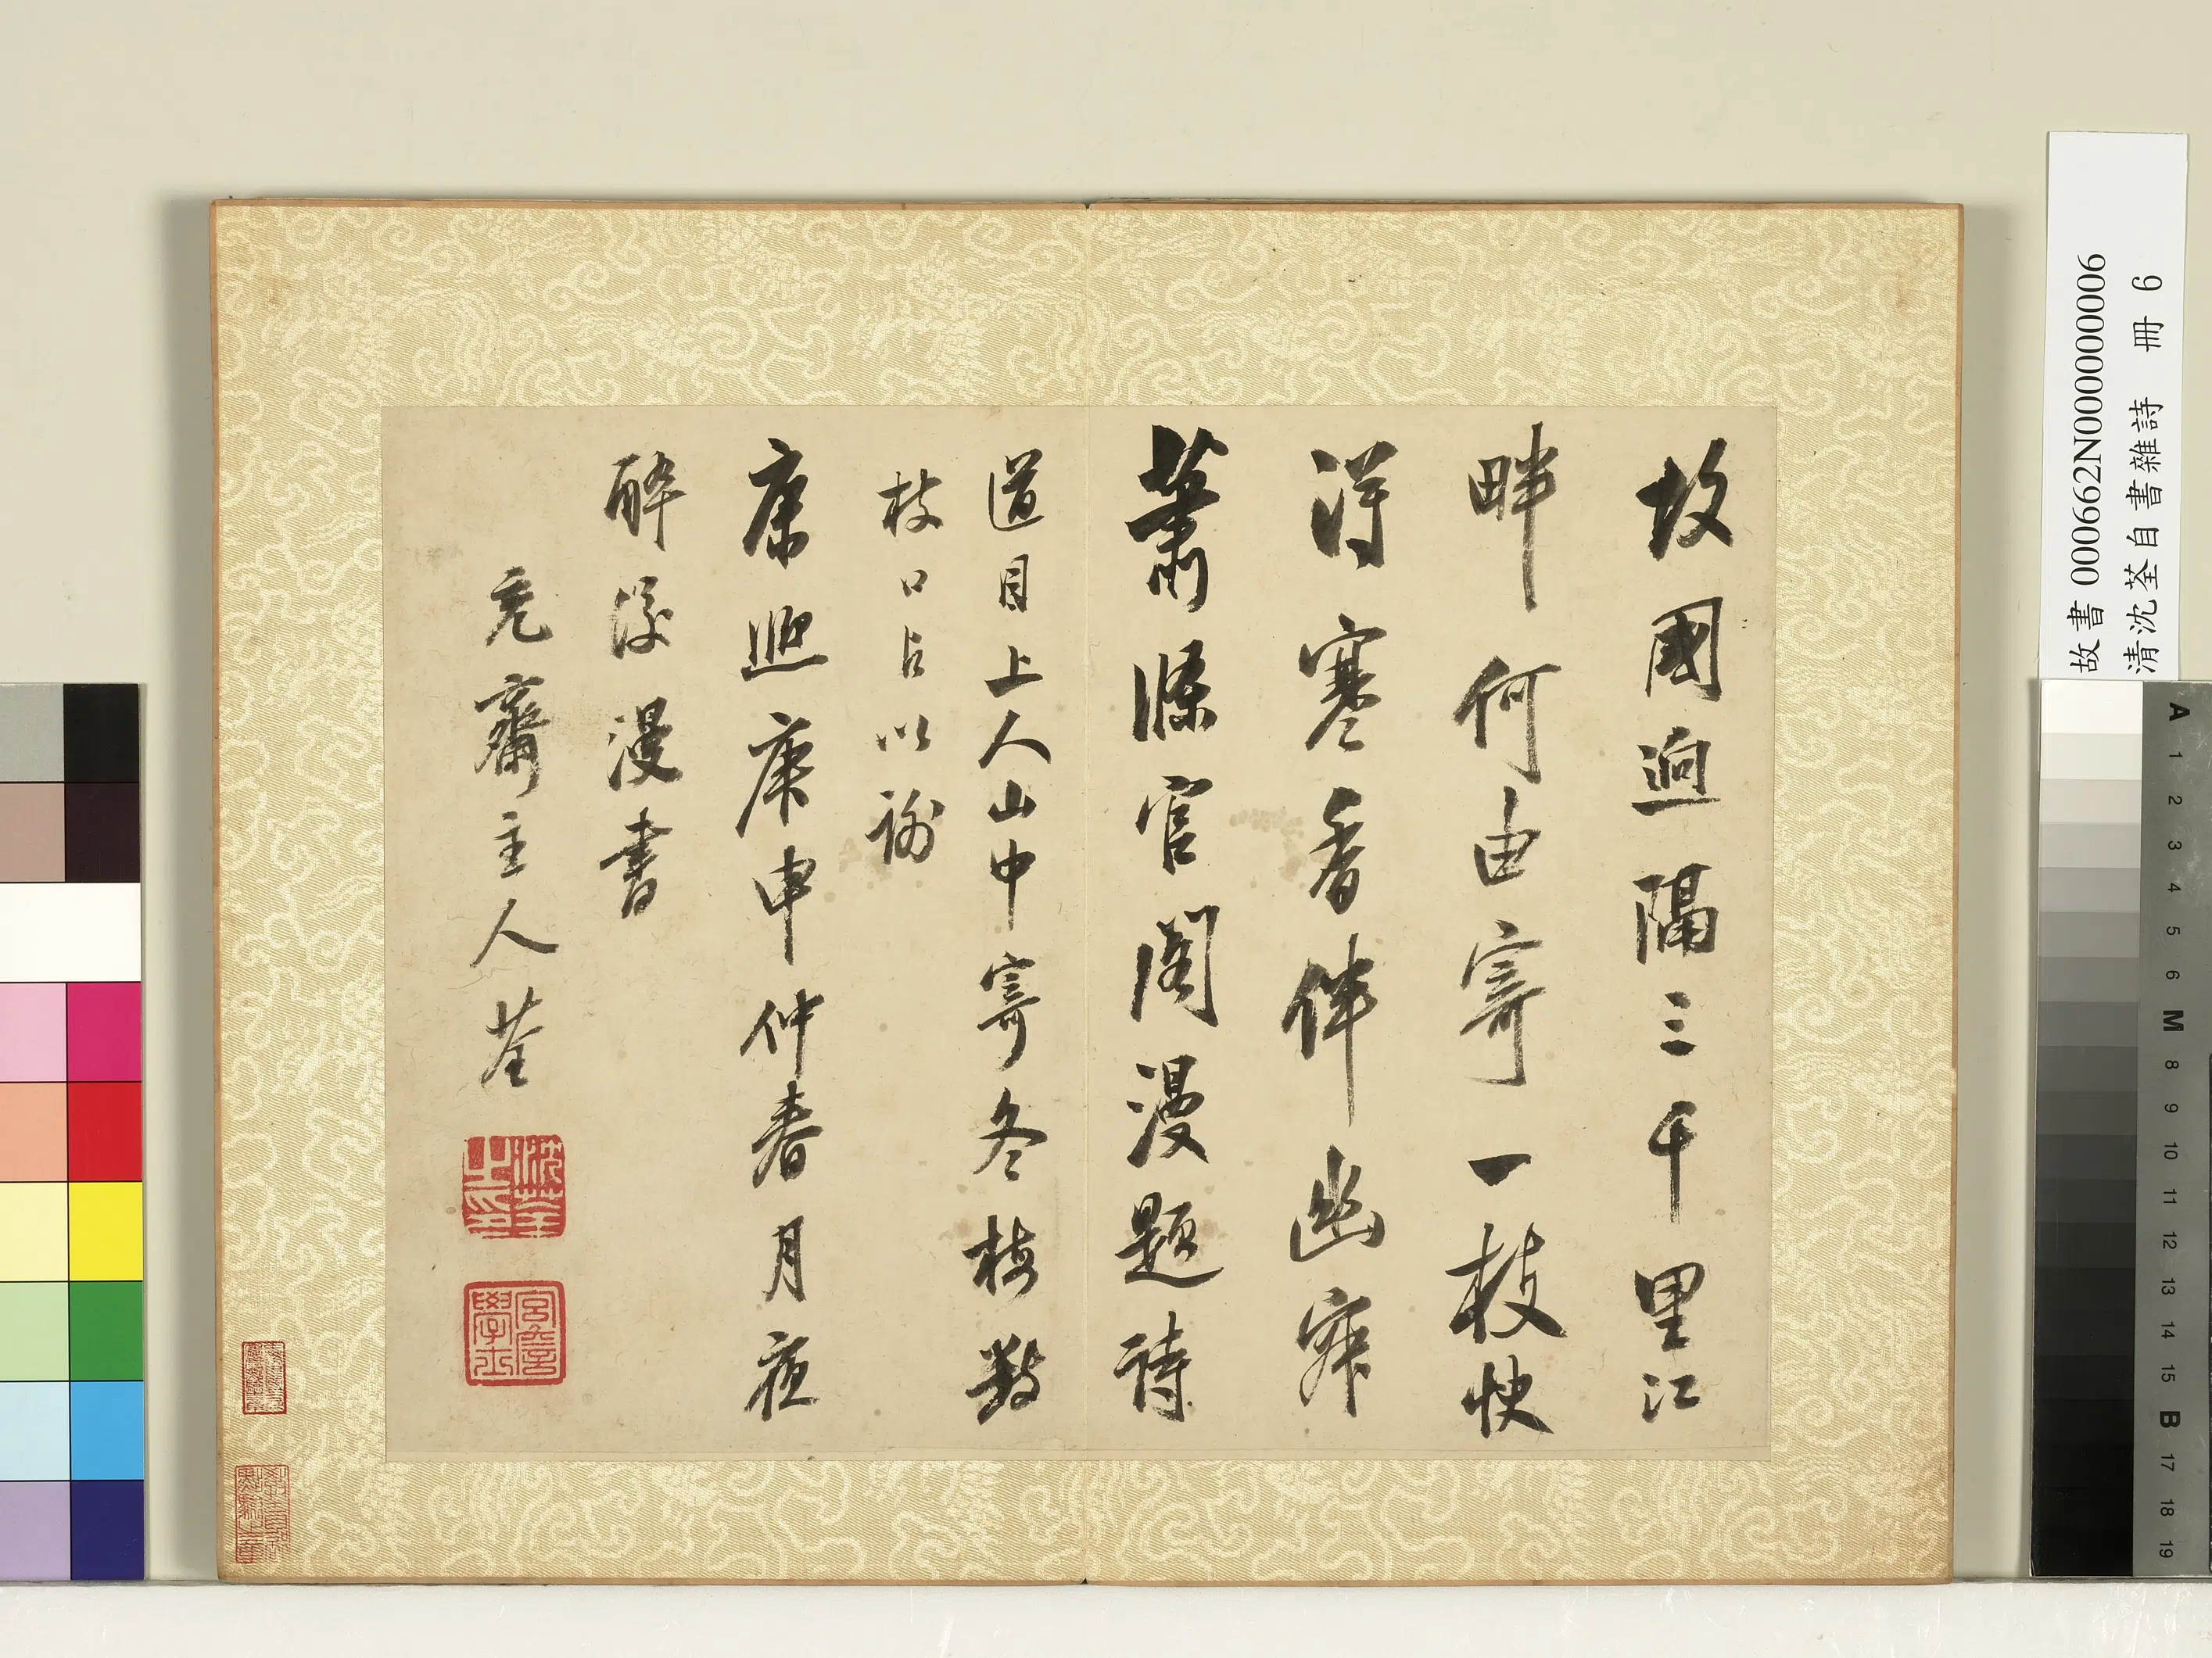 故國迥隔三千里江
畔何由寄一枝快
得寒香伴幽寂
蕭條官閣漫題詩
道目上人山中寄冬梅數
枝口占以謝
康熙庚申仲春月夜
醉後漫書
充齋主人荃
沈荃之印
宮詹學士
故書 000662N000000006
清沈荃自書雜詩 冊 6
A 1 2 3 4 5 6 M 8 9 10 11 12 13 14 15 B 17 18 19